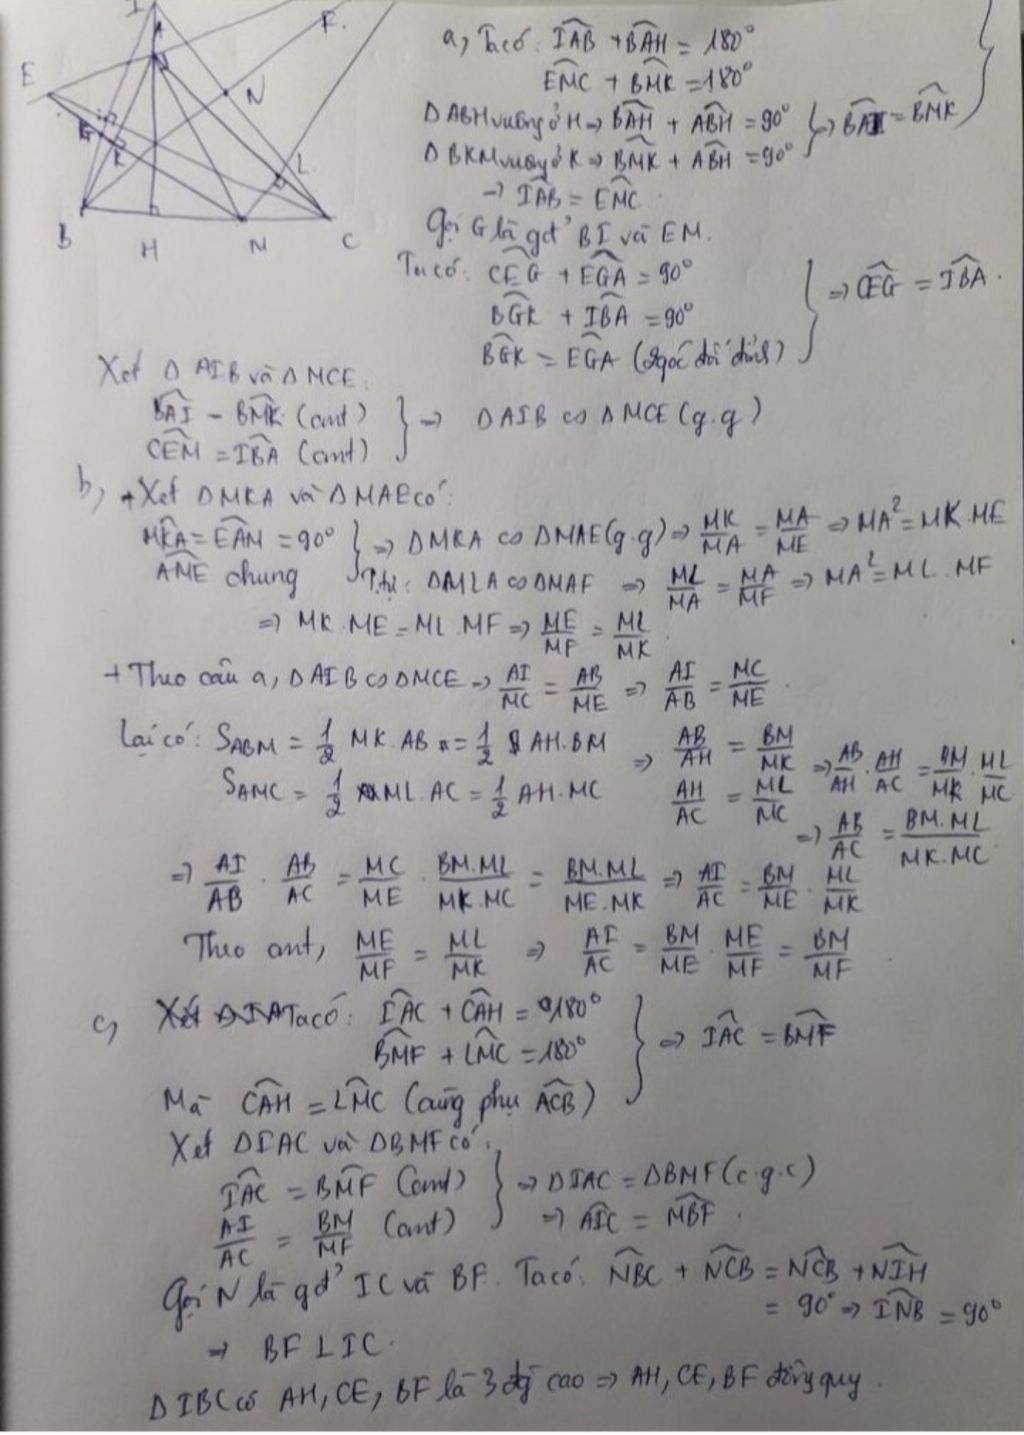 I
A
F
E
N
G
K
L
B
H
M
C
a, Ta có: IAB + BAH = 180°
EMC + BMK = 180°
Δ ABH vuông ở H ⇒ BAH + ABH = 90°
Δ BKM vuông ở K ⇒ BMK + ABH = 90°
⇒ BAI = BMK
→ IAB = EMC.
Gọi G là gđ' BI và EM.
Ta có: CEG + EGA = 90°
BGK + IBA = 90°
BGK = EGA (2 góc đối đỉnh)
⇒ CEG = IBA.
Xét Δ AIB và Δ MCE:
BAI = BMK (cmt)
CEM = IBA (cmt)
⇒ Δ AIB ∽ Δ MCE (g.g)
b, + Xét Δ MKA và Δ MAE có:
MKA = EAM = 90°
AME chung
⇒ Δ MKA ∽ Δ MAE (g.g) ⇒ MK/MA = MA/ME ⇒ MA² = MK.ME
Ttự: Δ MLA ∽ Δ MAF ⇒ ML/MA = MA/MF ⇒ MA² = ML.MF
⇒ MK.ME = ML.MF ⇒ ME/MF = ML/MK.
+ Theo câu a, Δ AIB ∽ Δ MCE ⇒ AI/MC = AB/ME ⇒ AI/AB = MC/ME.
Lại có: SABM = 1/2 MK.AB = 1/2 AH.BM
SAMC = 1/2 ML.AC = 1/2 AH.MC
⇒ AB/AH = BM/MK
AH/AC = ML/MC
⇒ AB/AH . AH/AC = BM/MK . ML/MC
⇒ AB/AC = BM.ML/MK.MC
⇒ AI/AB . AB/AC = MC/ME . BM.ML/MK.MC = BM.ML/ME.MK ⇒ AI/AC = BM/ME . ML/MK
Theo cmt, ME/MF = ML/MK ⇒ AI/AC = BM/ME . ME/MF = BM/MF.
c, Ta có: IAC + CAH = 180°
BMF + LMC = 180°
Mà CAH = LMC (cùng phụ ACB)
⇒ IAC = BMF
Xét Δ IAC và Δ BMF có:
IAC = BMF (cmt)
AI/AC = BM/MF (cmt)
⇒ Δ IAC = Δ BMF (c.g.c)
⇒ AIC = MBF.
Gọi N là gđ' IC và BF. Ta có: NBC + NCB = NCB + NIH
= 90° ⇒ INB = 90°
⇒ BF ⊥ IC.
Δ IBC có AH, CE, BF là 3 đg cao ⇒ AH, CE, BF đồng quy.